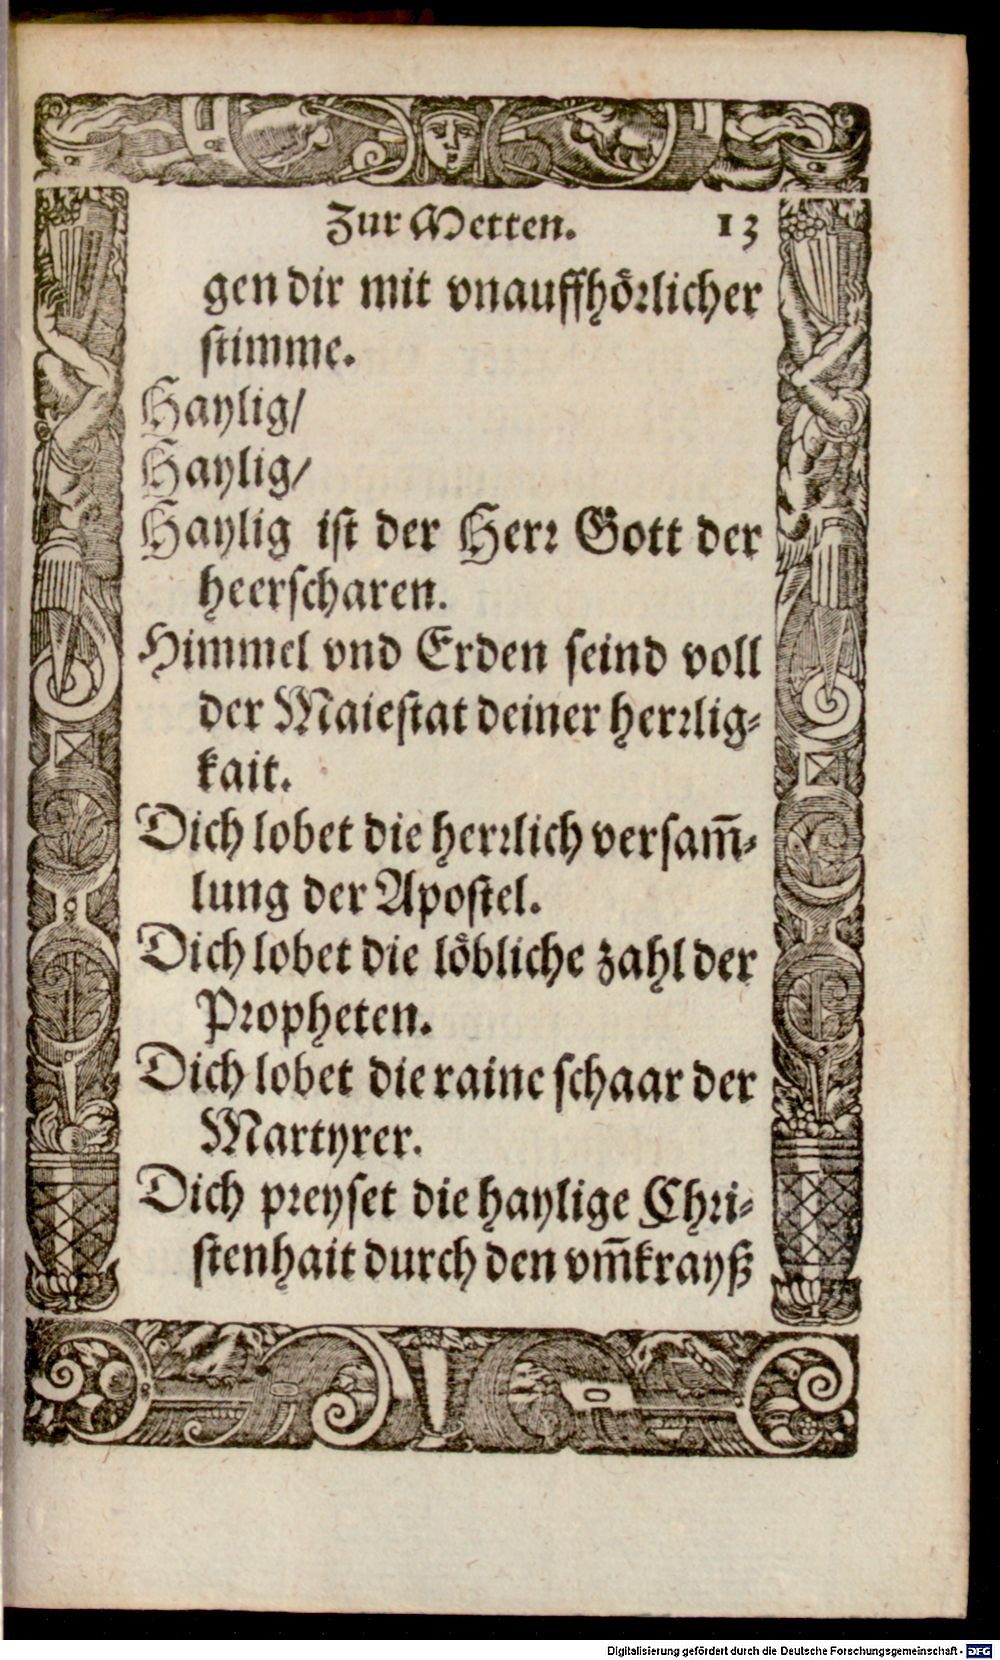 Zur Metten. 13
gen dir mit vnauffhoͤrlicher
ſtimme.
Haylig/
Haylig/
Haylig iſt der Herr Gott der
heerſcharen.
Himmel vnd Erden ſeind voll
der Maieſtat deiner herrlig⸗
kait.
Dich lobet die herrlich verſam̄⸗
lung der Apoſtel.
Dich lobet die loͤbliche zahl der
Propheten.
Dich lobet die raine ſchaar der
Martyrer.
Dich preyſet die haylige Chri⸗
ſtenhait durch den vm̄krayß
Digitalisierung gefördert durch die Deutsche Forschungsgemeinschaft - DFG